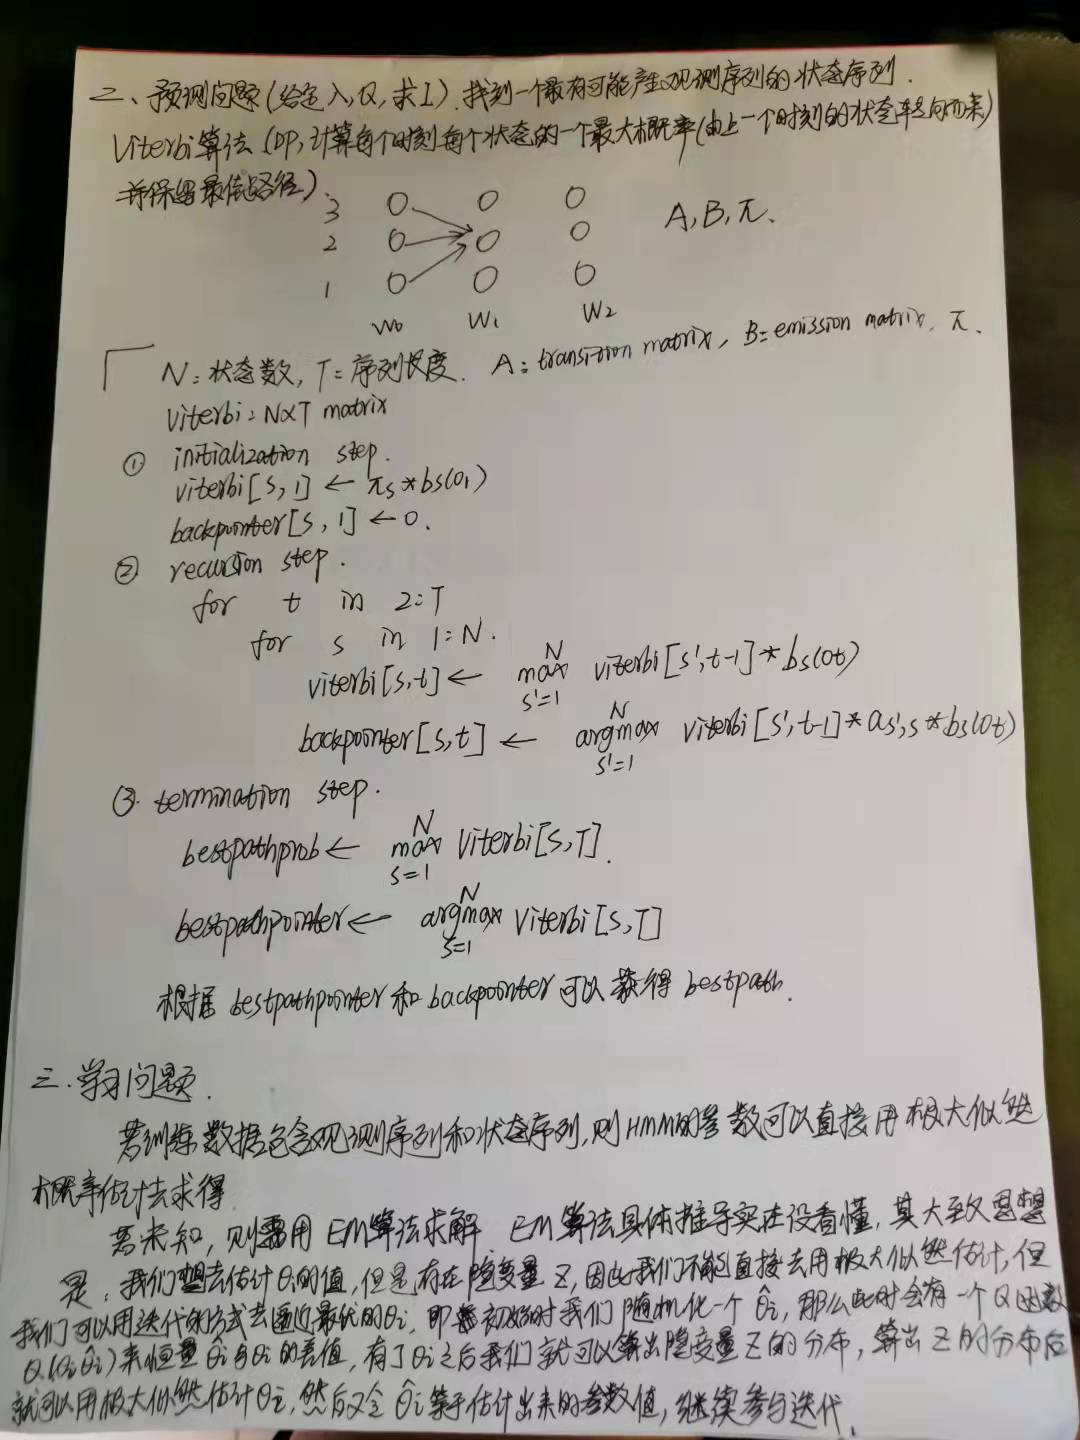 二、预测问题(给定λ,Q,求I).找到一个最有可能产生观测序列的状态序列.
Viterbi算法(DP,计算每个时刻每个状态的一个最大概率(由上一个时刻的状态转向而来)
并保留最佳路径).
3 O O O A,B,π.
2 O O O
1 O O O
W0 W1 W2
N=状态数, T=序列长度. A=transition matrix, B=emission matrix, π.
Viterbi=N×T matrix
① initialization step.
viterbi[s,1] ← πs*bs(O1)
backpointer[s,1] ← 0.
② recursion step.
for t in 2:T
for s in 1:N.
viterbi[s,t] ← max N s'=1 viterbi[s',t-1]*bs(Ot)
backpointer[s,t] ← argmax N s'=1 viterbi[s',t-1]*as's*bs(Ot)
③. termination step.
bestpathprob ← max N s=1 Viterbi[s,T].
bestpathpointer ← argmax N s=1 Viterbi[s,T]
根据bestpathpointer和backpointer可以获得bestpath.
三.学习问题.
若训练数据包含观测序列和状态序列,则HMM的参数可以直接用极大似然
概率估计去求得
若未知,则需用EM算法求解. EM算法具体推导实在没看懂,其大致思想
是,我们想去估计θi的值,但是存在隐变量Z,因此我们不能直接去用极大似然估计,但
我们可以用迭代的方式去逼近最优的θi,即初始时我们随机化一个θ̂i,那么此时会有一个Q函数
Q(θi,θ̂i)来衡量θ̂i与θi的差值,有了θi之后我们就可以算出隐变量Z的分布,算出Z的分布后
就可以用极大似然估计θi,然后又令θ̂i等于估计出来的参数值,继续参与迭代.